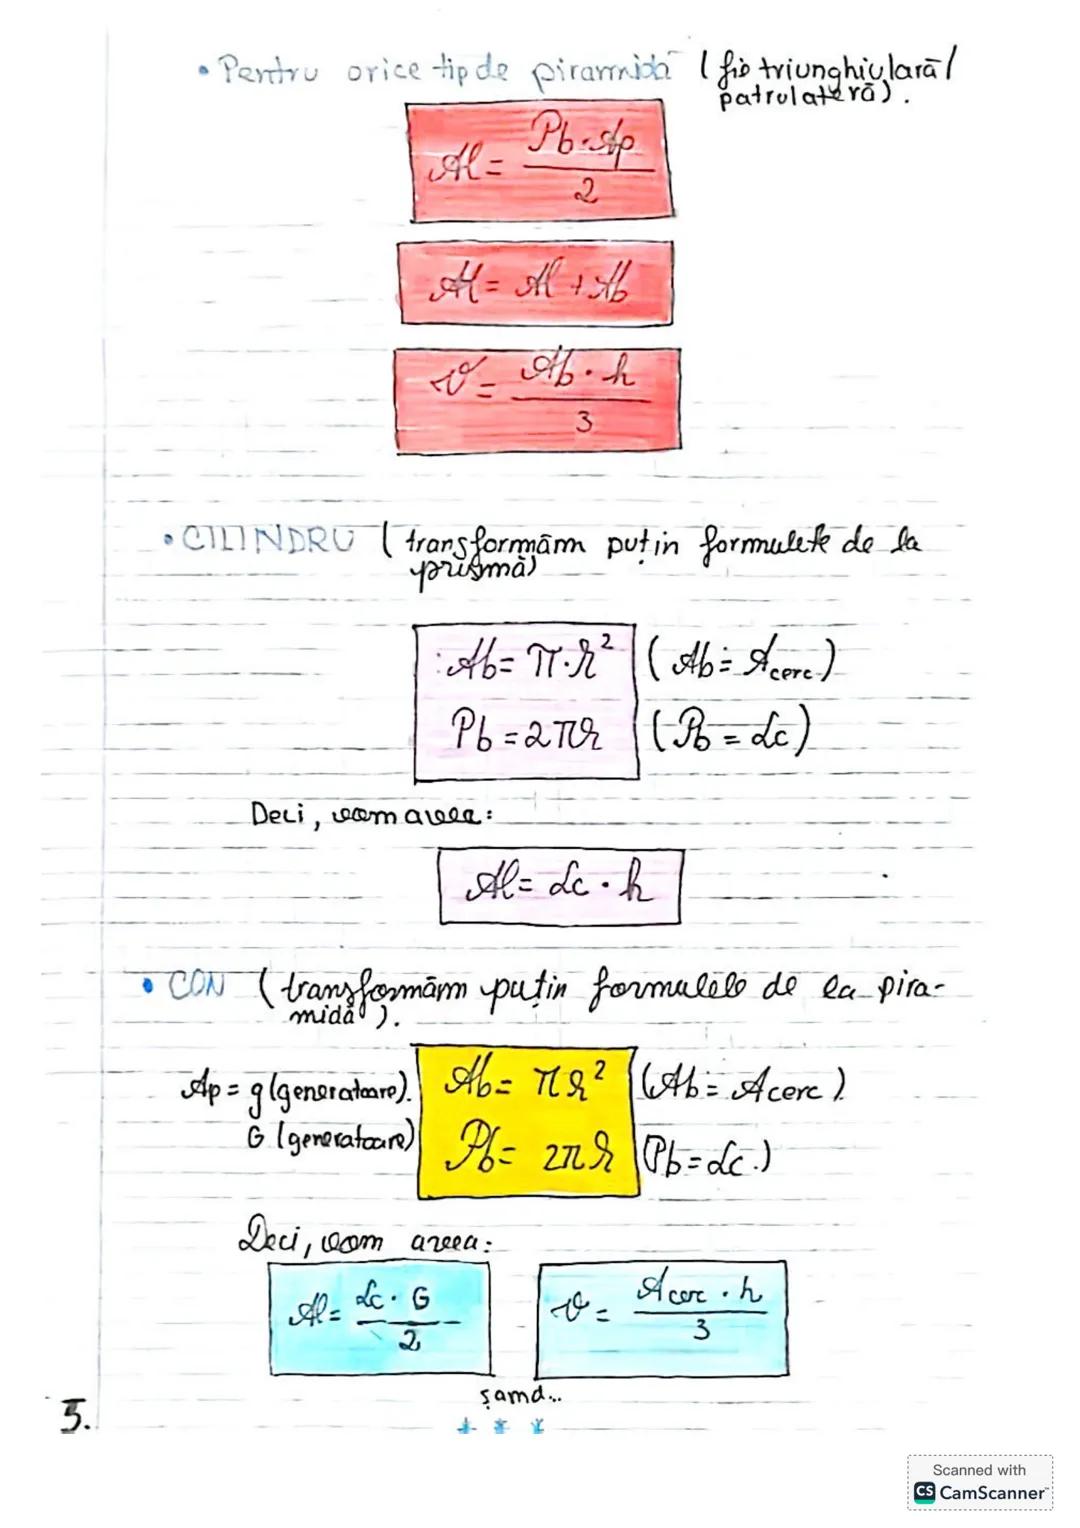 • Pentru orice tip de piramidă (fie triunghiulară/
patrulateră).
Al = Pb·Ap / 2
At = Al + Ab
V = Ab · h / 3
• CILINDRU (transformăm puțin formulele de la
prismă)
Ab = π·r² (Ab = Acerc)
Pb = 2πr (Pb = Lc)
Deci, vom avea:
Al = Lc · h
• CON (transformăm puțin formulele de la pira-
midă).
Ap = g (generatoare). Ab = πr² (Ab = Acerc).
G (generatoare) Pb = 2πr (Pb = Lc.)
Deci, vom avea:
Al = Lc · G / 2 V = Acerc · h / 3
șamd...
* * *
5.
Scanned with
CS CamScanner™